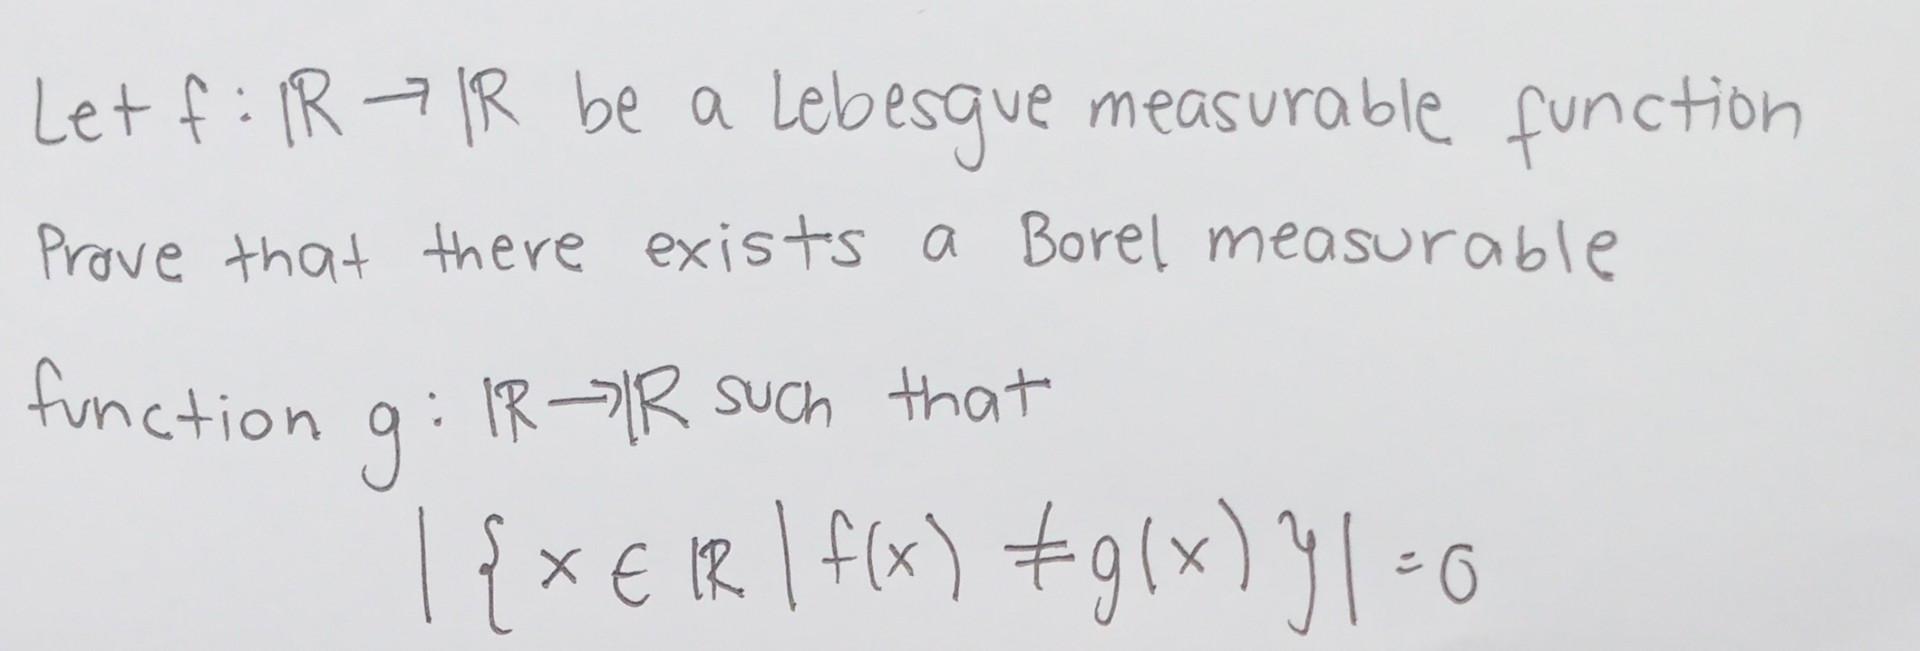 Let f : ℝ → ℝ be a Lebesgue measurable function
Prove that there exists a Borel measurable
function g : ℝ → ℝ such that
| { x ∈ ℝ | f(x) ≠ g(x) } | = 0